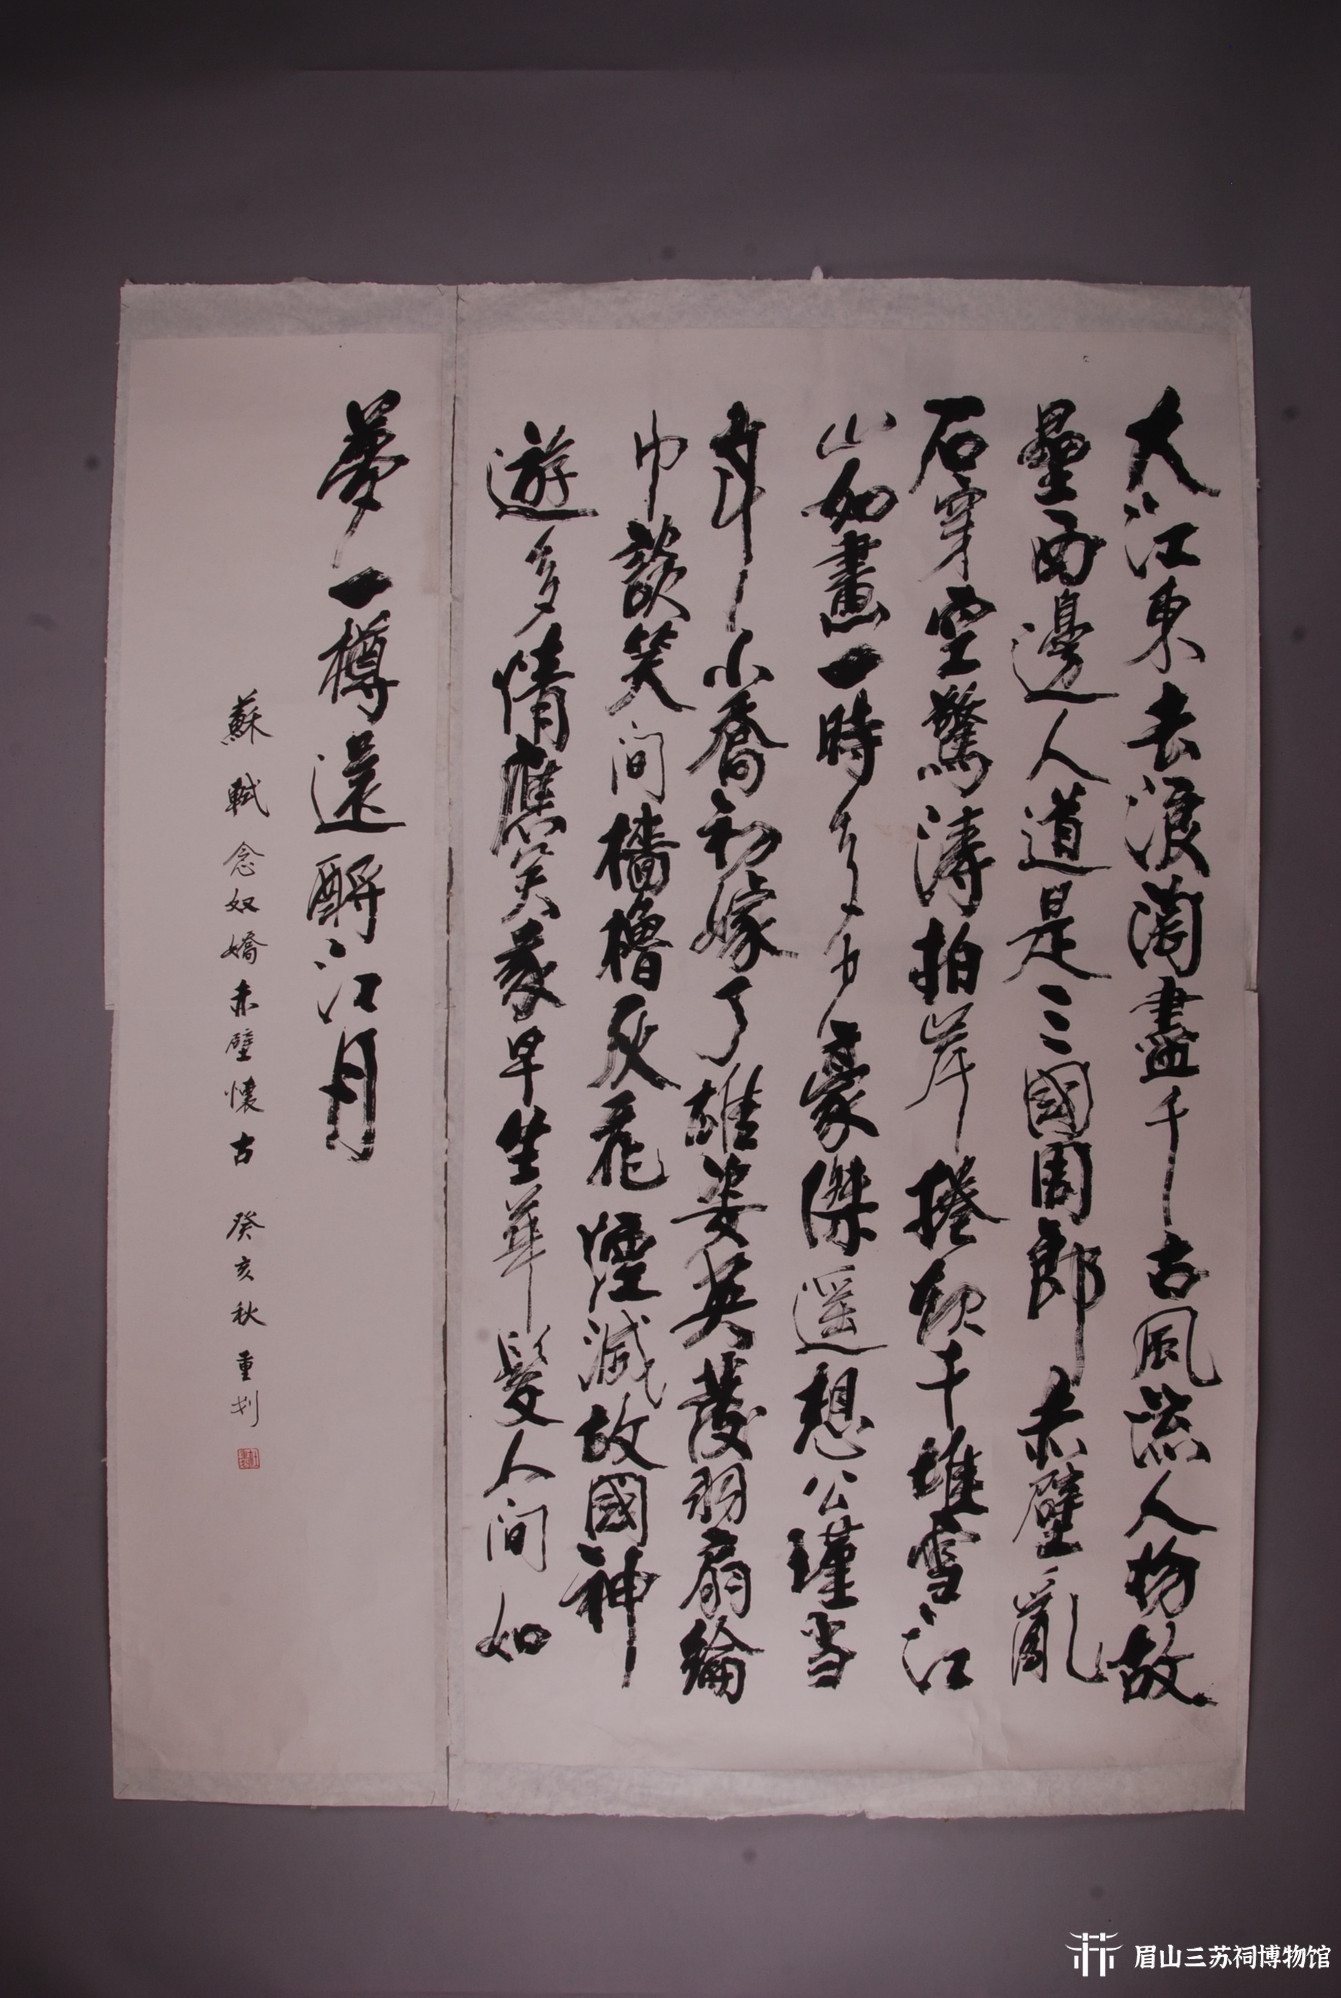 大江東去浪淘盡千古風流人物故
壘西邊人道是三國周郎赤壁亂
石穿空驚濤拍岸捲起千堆雪江
山如畫一時多少豪傑遥想公瑾当
年小喬初嫁了雄姿英發羽扇綸
巾談笑间檣櫓灰飛煙滅故國神
遊多情應笑我早生華髮人间如
夢一樽還酹江月
蘇軾念奴嬌赤壁懷古 癸亥秋 重刬
眉山三苏祠博物馆